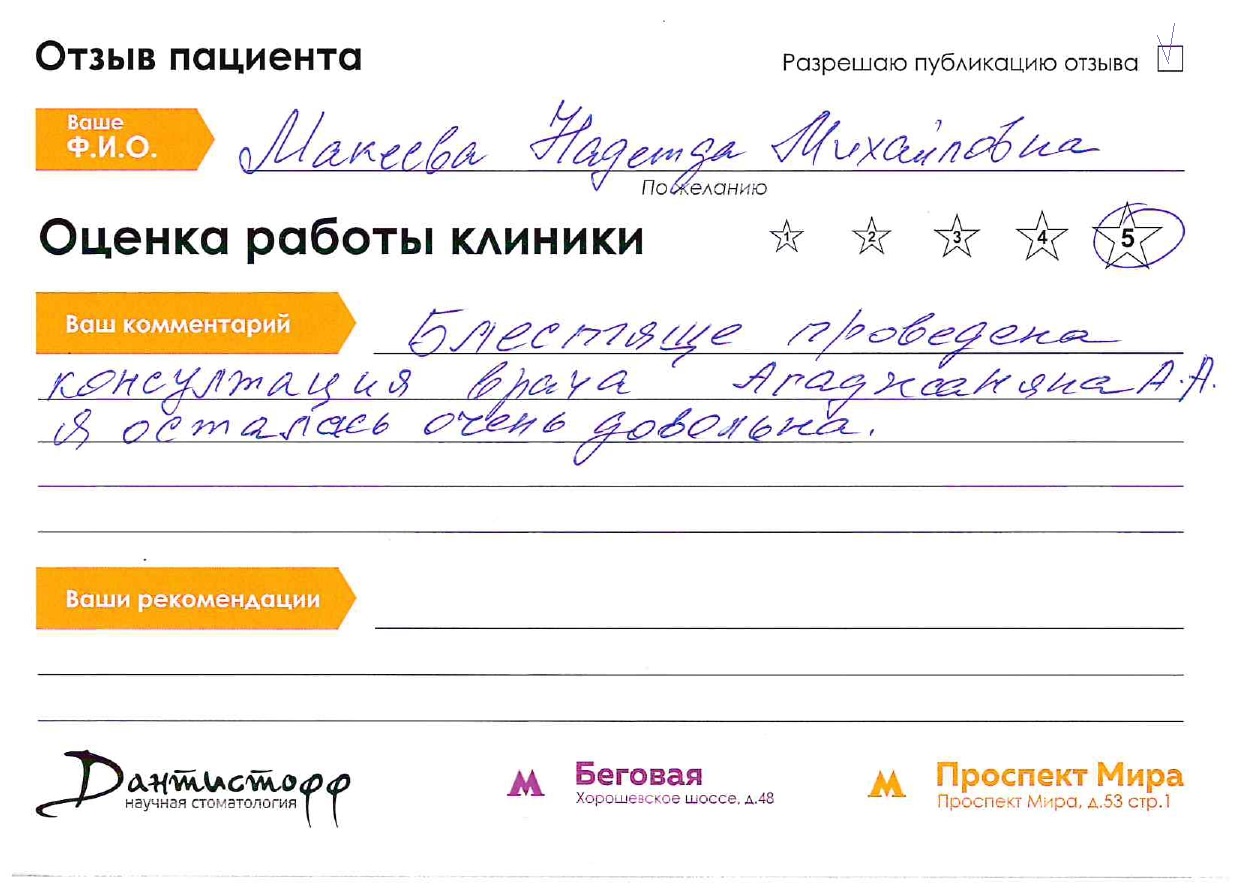 Отзыв пациента
Разрешаю публикацию отзыва
Ваше
Ф.И.О.
Макеева Надежда Михайловна
По желанию
Оценка работы клиники
1 2 3 4 5
Ваш комментарий
Блестяще проведена
консултация врача Агаджаняна А.А.
Я осталась очень довольна.
Ваши рекомендации
Дантистофф
научная стоматология
Беговая
Хорошевское шоссе, д.48
Проспект Мира
Проспект Мира, д.53 стр.1